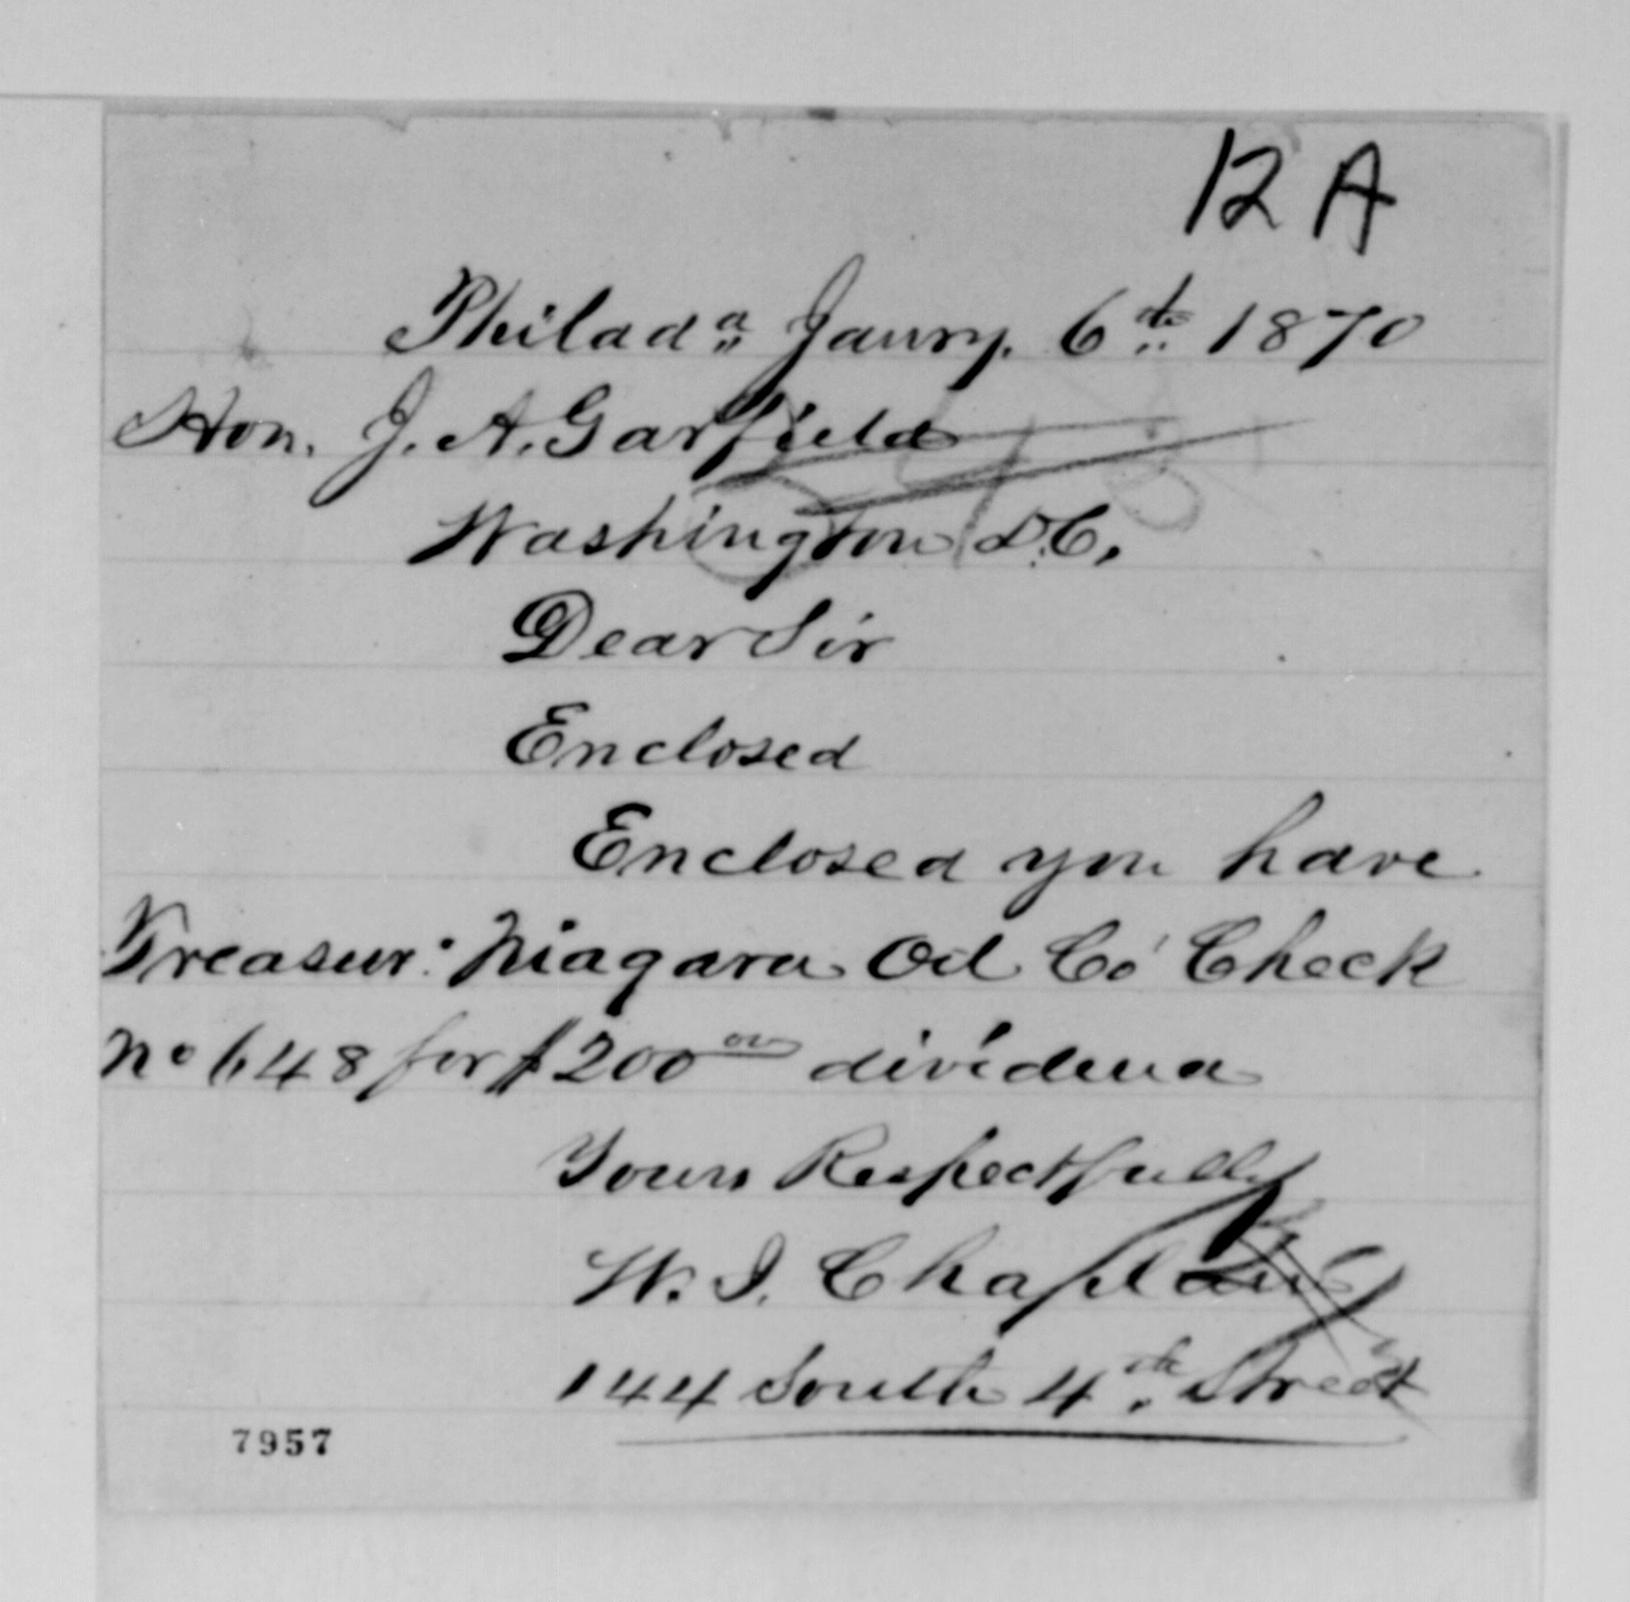 12 A
Philada Janry. 6th 1870
Hon. J. A. Garfield
Washington D.C.
Dear Sir
Enclosed
Enclosed you have
Treasur: Niagara Oil Co' Check
No 648 for $200 00 dividend
Yours Respectfully
W. I. Chaplain
144 South 4th Street
7957